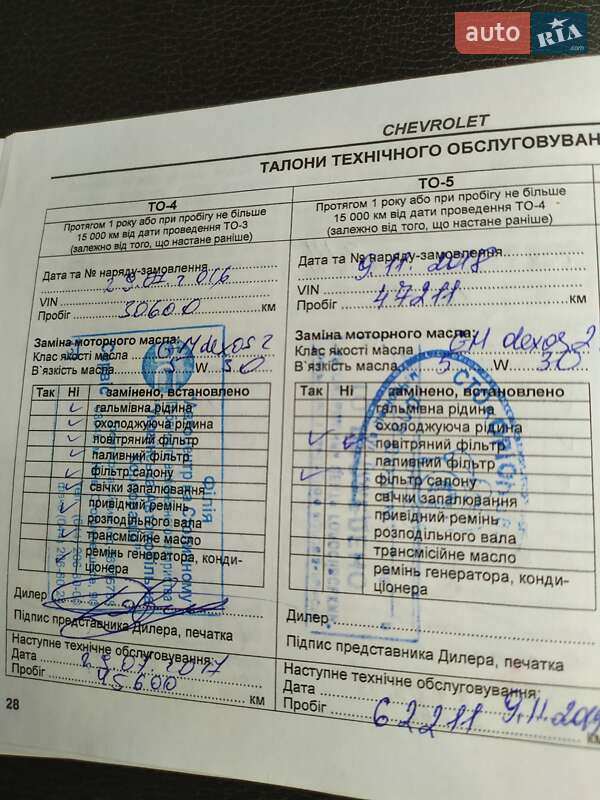 auto RIA .com
CHEVROLET
ТАЛОНИ ТЕХНІЧНОГО ОБСЛУГОВУВАН
ТО-4
Протягом 1 року або при пробігу не більше
15 000 км від дати проведення ТО-3
(залежно від того, що настане раніше)
Дата та № наряду-замовлення
29.07.2016
VIN
Пробіг 30600 км
Заміна моторного масла:
Клас якості масла GM dexos 2
В`язкість масла 5 W 30
Так Ні замінено, встановлено
гальмівна рідина
охолоджуюча рідина
повітряний фільтр
паливний фільтр
фільтр салону
свічки запалювання
привідний ремінь
розподільного вала
трансмісійне масло
ремінь генератора, конди-
ціонера
Дилер
Підпис представника Дилера, печатка
Наступне технічне обслуговування:
Дата 29.07.2017
Пробіг 45600 км
28
ТО-5
Протягом 1 року або при пробігу не більше
15 000 км від дати проведення ТО-4
(залежно від того, що настане раніше)
Дата та № наряду-замовлення
9.11.2018
VIN
Пробіг 47211
Заміна моторного масла:
Клас якості масла GM dexos 2
В`язкість масла 5 W 30
Так Ні замінено, встановлено
гальмівна рідина
охолоджуюча рідина
повітряний фільтр
паливний фільтр
фільтр салону
свічки запалювання
привідний ремінь
розподільного вала
трансмісійне масло
ремінь генератора, конди-
ціонера
Дилер
Підпис представника Дилера, печатка
Наступне технічне обслуговування:
Дата 9.11.2019
Пробіг 62211 км
філія